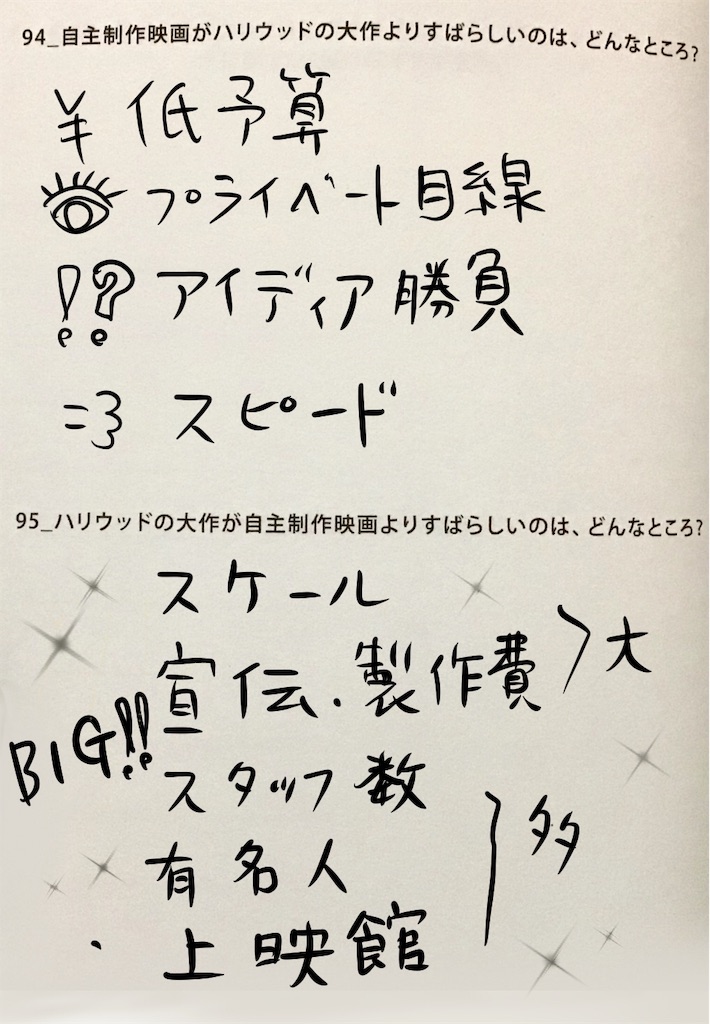 94_自主制作映画がハリウッドの大作よりすばらしいのは、どんなところ?
¥ 低予算
プライベート目線
!? アイディア勝負
スピード
95_ハリウッドの大作が自主制作映画よりすばらしいのは、どんなところ?
スケール
宣伝・製作費
大
BIG!!
スタッフ数
有名人
多
上映館